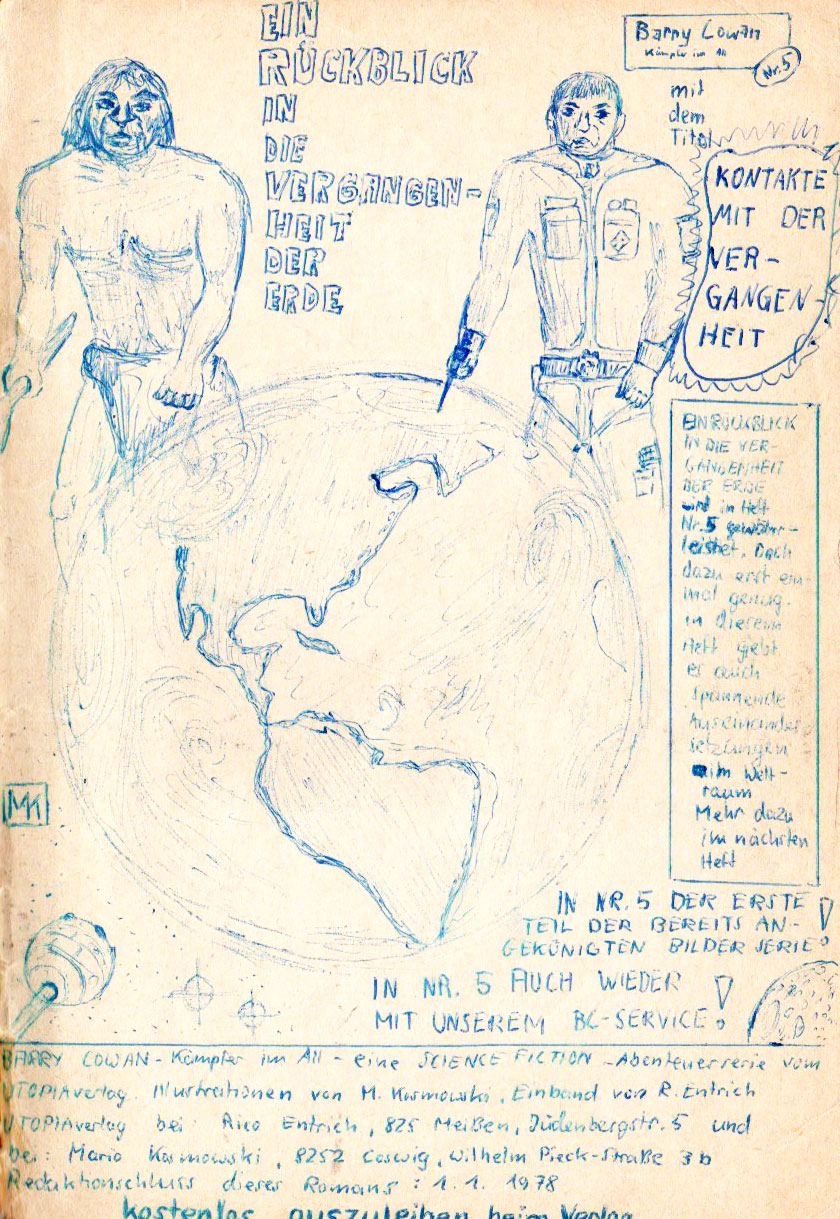 EIN
RÜCKBLICK
IN
DIE
VERGANGEN-
HEIT
DER
ERDE
Barry Cowan
Kämpfer im All
Nr. 5
mit
dem
Titel
KONTAKTE
MIT DER
VER-
GANGEN-
HEIT
EIN RÜCKBLICK
IN DIE VER-
GANGENHEIT
DER ERDE
wird im Heft
Nr. 5 gewähr-
leistet. Doch
dazu erst ein-
mal genug.
in diesem
Heft giebt
es auch
spannende
Auseinander-
setzungen
im Welt-
raum
Mehr dazu
im nächsten
Heft
MK
IN NR. 5 DER ERSTE
TEIL DER BEREITS AN-
GEKÜNIGTEN BILDER SERIE!
IN NR. 5 AUCH WIEDER
MIT UNSEREM BC-SERVICE!
BARRY COWAN - Kämpfer im All - eine SCIENCE FICTION -Abenteuerserie vom
UTOPIAverlag. Illustrationen von M. Kosmowski, Einband von R. Entrich
UTOPIAverlag bei: Rico Entrich, 825 Meißen, Jüdenbergstr. 5 und
bei: Mario Kosmowski, 8252 Coswig, Wilhelm Pieck-Straße 3b
Redaktionschluss dieses Romans: 1. 1. 1978
kostenlos auszuleihen beim Verlag